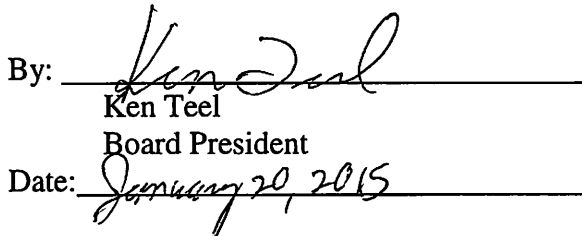 By: Ken Teel
Ken Teel
Board President
Date: January 20, 2015